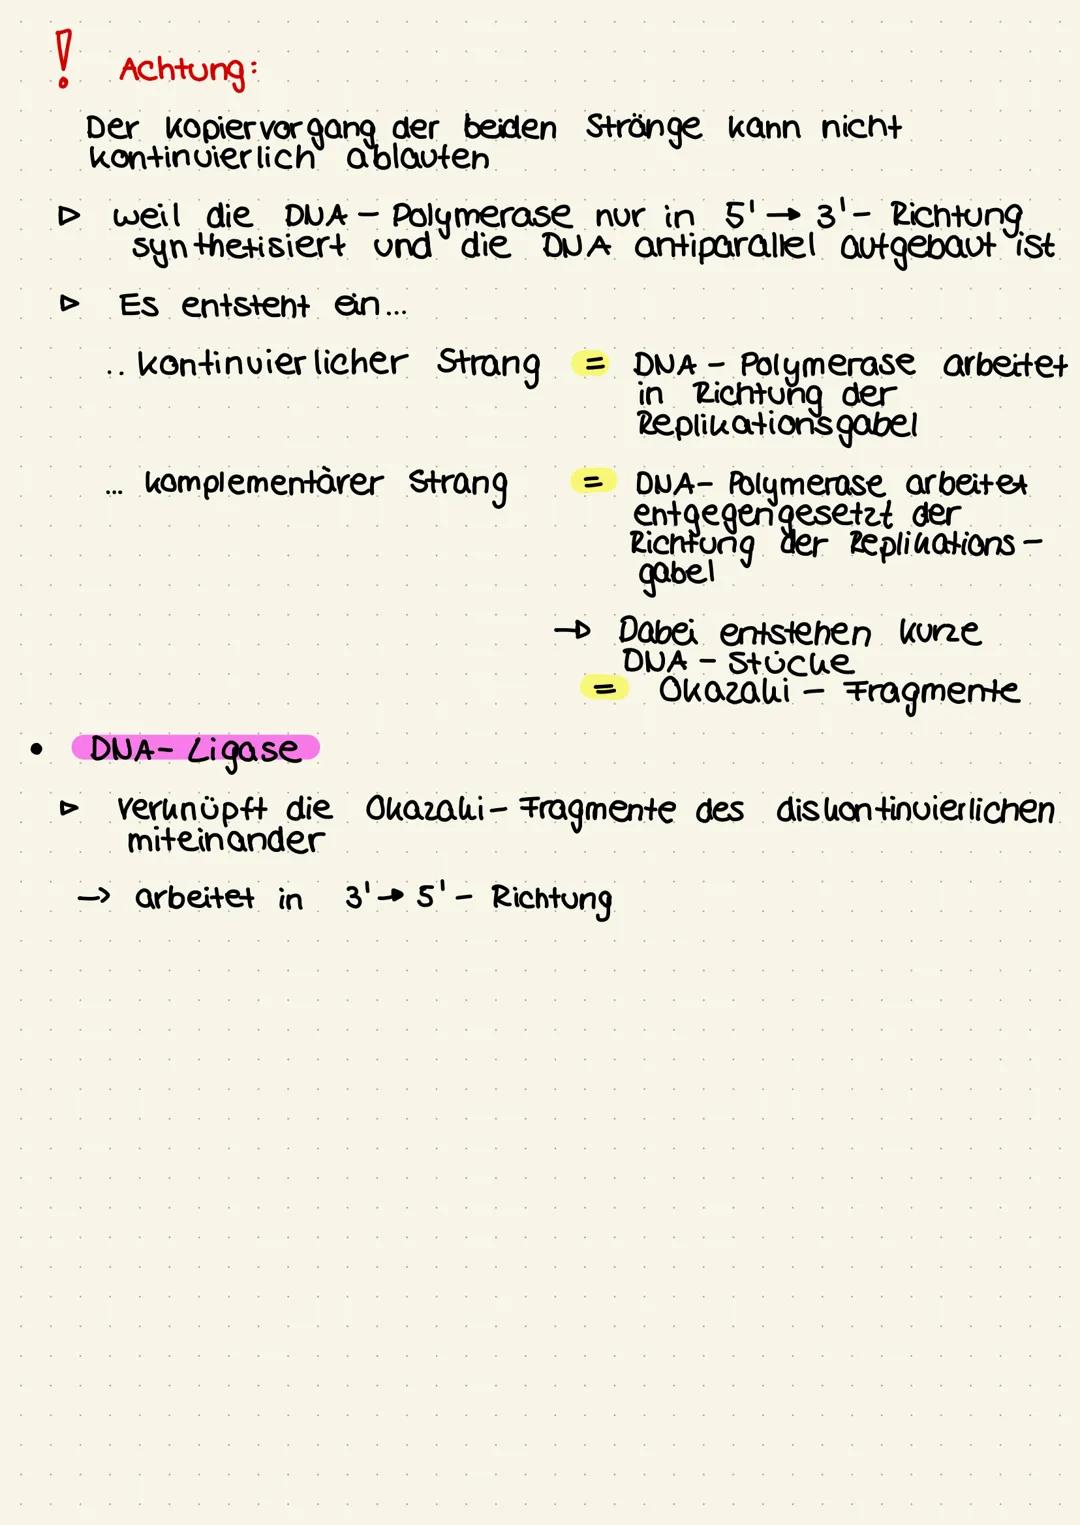 ! Achtung:
Der Kopiervorgang der beiden Stränge kann nicht
kontinuierlich ablaufen
▷ weil die DNA - Polymerase nur in 5' → 3' - Richtung
synthetisiert und die DNA antiparallel aufgebaut ist
▷ Es entsteht ein...
.. kontinuierlicher Strang = DNA - Polymerase arbeitet
in Richtung der
Replikationsgabel
... komplementärer Strang = DNA- Polymerase arbeitet
entgegengesetzt der
Richtung der Replikations -
gabel
→ Dabei entstehen kurze
DNA - Stücke
= Okazaki - Fragmente
• DNA- Ligase
▷ verknüpft die Okazaki - Fragmente des diskontinuierlichen
miteinander
-> arbeitet in 3' → 5' - Richtung